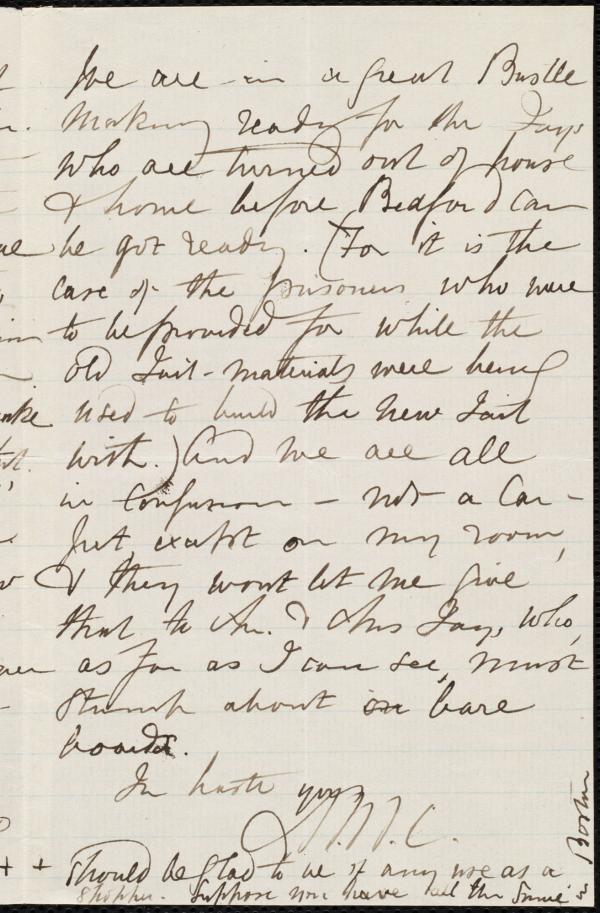 We are in a great Bustle
Making ready for the Jays
who are turned out of house
& home before Bedford can
be got ready. (For it is the
case of the prisoners who were
to be provided for while the
old Jail-materials were being
used to build the new Jail
with.) And we are all
in confusion - not a Car-
pet except on my room,
& they wont let me give
that to Mr. & Mrs Jay, who,
as far as I can see, must
stump about on bare
boards.
In haste yours
M.W.C.
+ + Should be glad to be of any use as a
shopper. Suppose you have all the same in
Boston